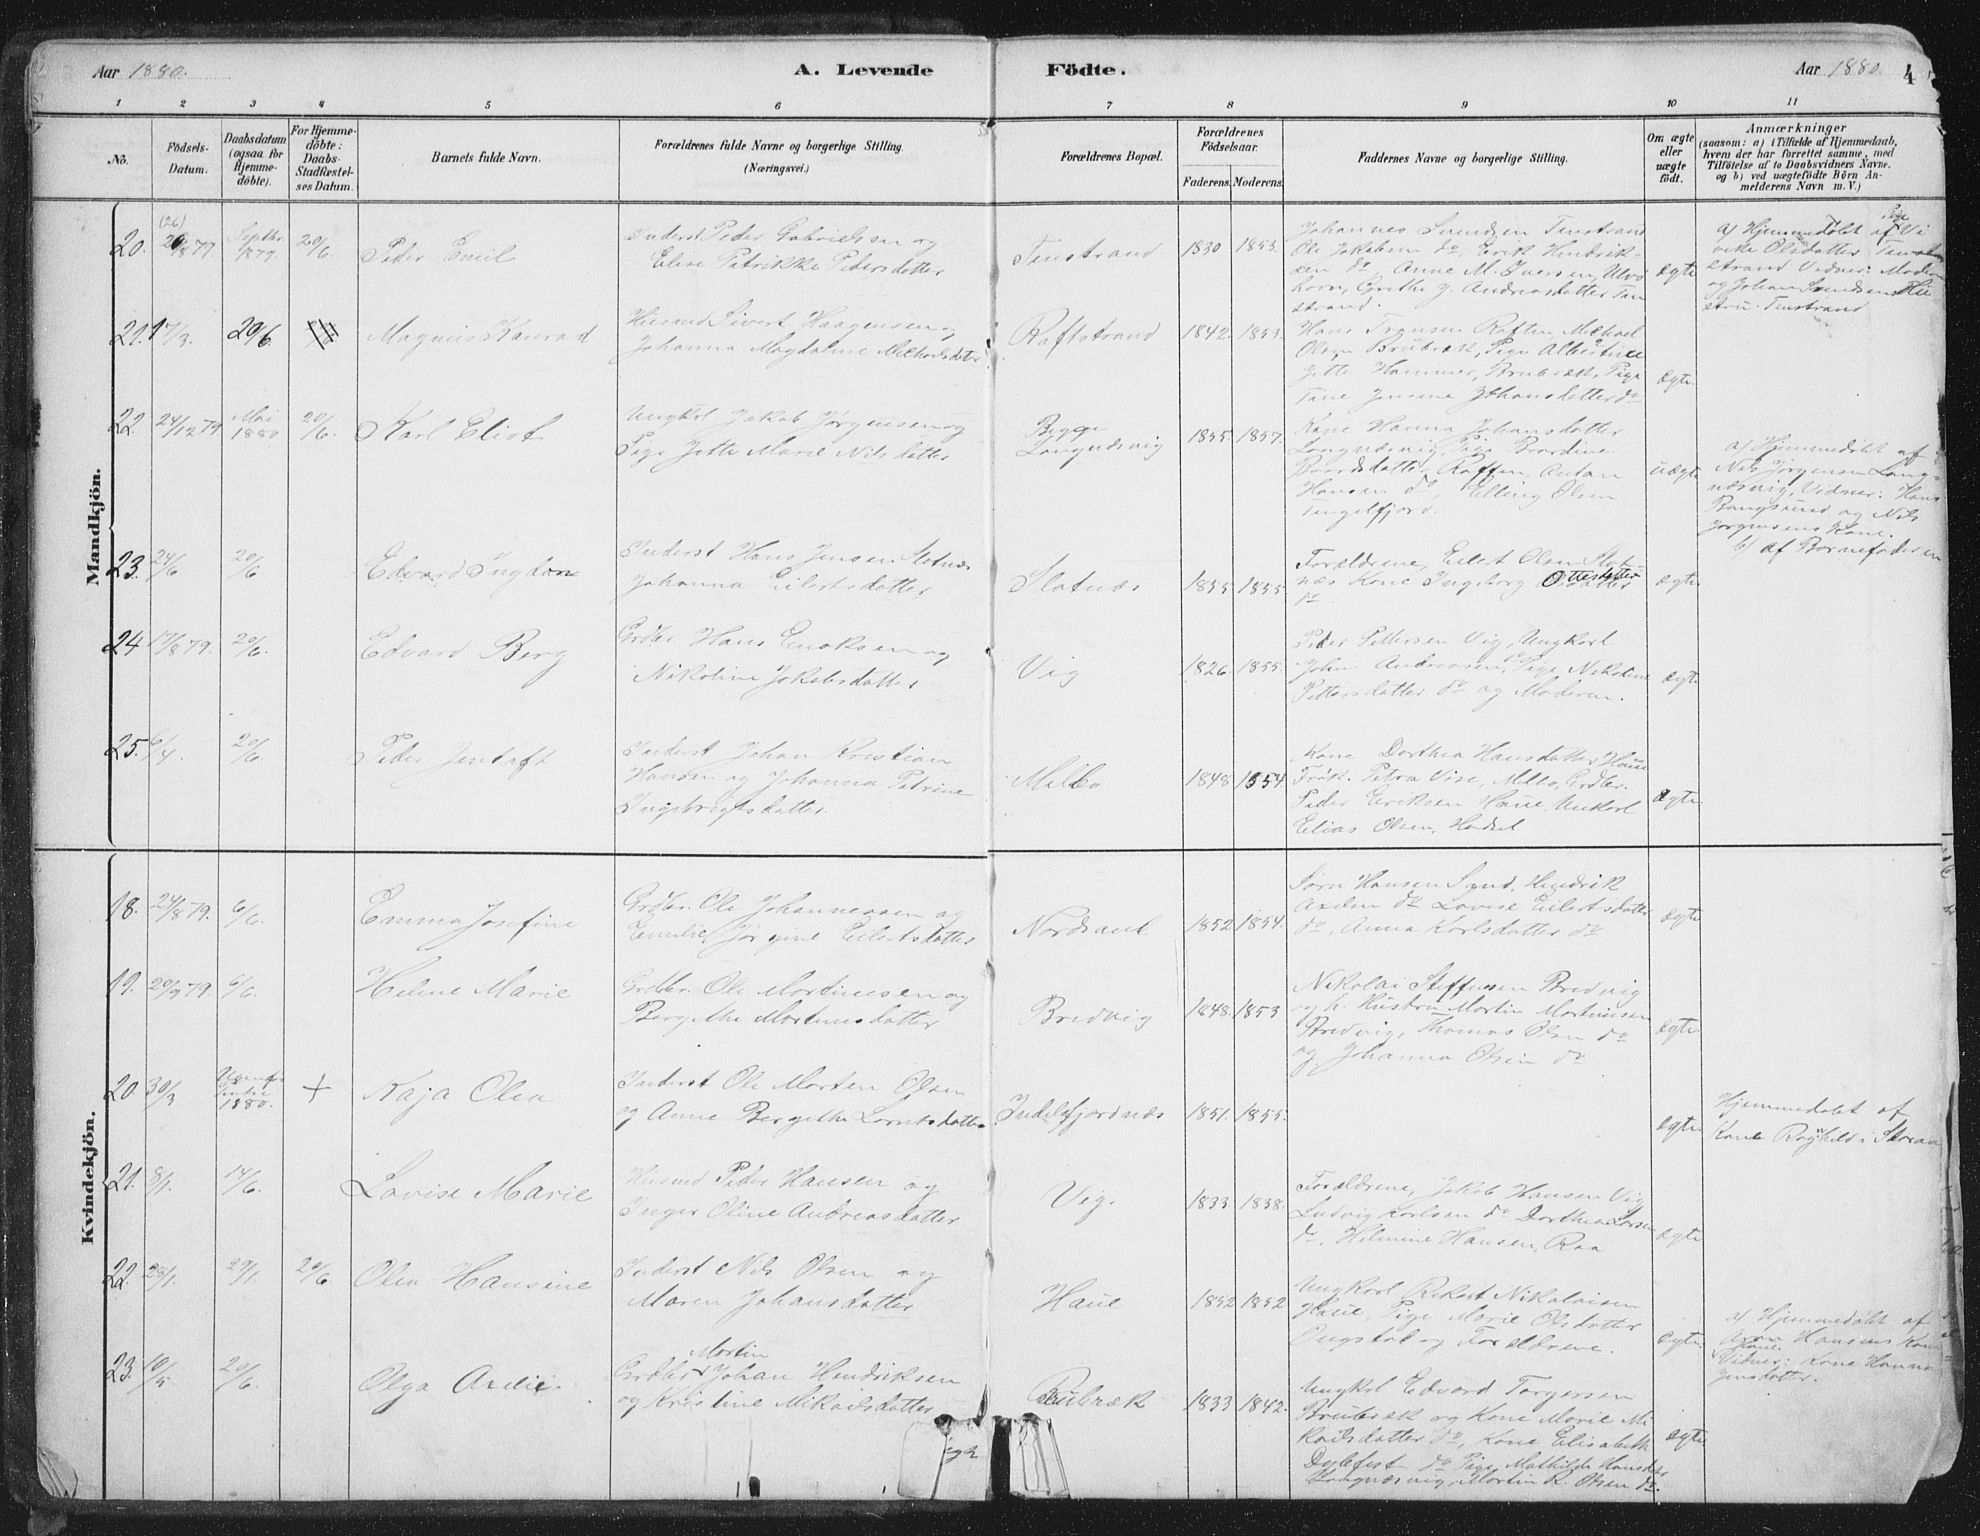 Aar 1880.
A. Levende Födte.
Aar 1880. 4
1 2 3 4 5 6 7 8 9 10 11
No.
Födsels-Datum.
Daabsdatum (ogsaa for Hjemme-döbte).
For Hjemme-döbte: Daabs-Stadfæstel-ses Datum.
Barnets fulde Navn.
Forældrenes fulde Navne og borgerlige Stilling.
(Næringsvei.)
Forældrenes Bopæl.
Forældrenes Födselsaar.
Faderens. Moderens.
Faddernes Navne og borgerlige Stilling.
Om ægte eller uægte födt.
Anmærkninger
(saasom: a) i Tilfælde af Hjemmedaab,
hvem der har forrettet samme, med
Tilföielse af to Daabsvidners Navne,
og b) ved uægtefödte Börn An-
melderens Navn m. V.)
Mandkjön.
20. (26) 1879. Septbr. 1879. 20/6 Peder Emil
Inderst Peder Gabrielsen og
Elise Petrikke Pedersdatter
Tenstrand 1830 1853
Johannes Tenstrand
Ole Jakobsen do, Erik Hendrik-
sen do, Anne M. Iversen,
Grethe J. Andreasdatter Ten
strand.
ægte
a) Hjemmedøbt af Pige Vi
vike Olsdatter Ten
strand Vidner: Moderen
og Johan Hu
stru. Tenstrand
21. 17/3. 20/6 Magnus Konrad
Husmd Sivert Haagensen og
Johanna Magdalene Mikkelsdatter
Raftstrand 1842. 1853.
Hans Raften Michael
Olsen Brubræk, Pige Albertine
Jette Hammer, Brubræk, Pige
Tine Johansdatter do
ægte.
22. 24/12 79. Mai 1880 20/6. Karl Eliot
Ungkrl Jakob Jørgensen og
Pige Jette Marie Nilsdatter
Begge
Langnæsvig 1855. 1857.
Kone Hanna Johansdatter
Langnæsvig, Pige Bardine
Raften, Anton
Hansen do, Elling Olsen
Tengelfjord.
uægte
a) Hjemmedøbt af
Nils Jørgensen Lang-
næsvig, Vidner: Hans
og Nils
Jørgensens Kone.
b) af Barnefaderen
23. 24/6 20/6 Edvard
Inderst Hans Jensen Slotnæs
Johanna Eilertsdatter
Slotnæs 1855 1855
Forældrene, Eilert Olsen Slot-
næs Kone Ingeborg Ottesdatter
do
ægte.
24 17/8 79. 20/6. Edvard Berg
Grdbr. Hans Enoksen og
Nikoline Jakobsdatter
Vig 1826. 1855.
Peder Pettersen Vig, Ungkarl
Johan Andreasen, Pige Nikoline
Pettersdatter do og Moderen.
ægte.
25. 6/4. 20/6. Peder Jentoft
Inderst Johan Kristian
Hansen og Johanna Petrine
Ingebrigtsdatter.
Melbo 1848 1854.
Kone Dorthea Hansdatter, Haue
Frøk. Petra Vise, Melbo, Grdbr.
Peder Eriksen Haue, Unkarl
Elias Olsen, Hadsel
ægte.
Kvindekjön.
18. 24/8 79. 6/6. Emma Josefine
Grdbr. Ole Johannessen og
Emilie Jørgine Eilertsdatter
Nordsand 1852 1854.
Søren Hansen Sand, Hendrik
do Lovise Eilertsdatter
do, Anna Karlsdatter do
ægte
19. 20/9 79. 6/6. Helene Marie
Grdbr. Ole Martinusen og
Bergithe Martinusdatter
Bredvig 1848. 1853
Nikolai Steffensen Bredvig
og h. Hustru Martin Martinusen
Bredvig, Thomas Olsen do
og Johanna Olsen do
ægte.
20. 30/3 1880. + Kaja Olea
Inderst Ole Morten Olsen
og Anne Bergitha Lorntsdatter
Indelsfjordnæs 1851. 1855.
ægte.
Hjemmedøbt af
Kone Ragnhild i
21. 8/1. 14/6. Lovise Marie
Husmd Peder Hansen og
Inger Oline Andreasdatter
Vig. 1833. 1838.
Forældrene, Jakob Hansen Vig
Ludvig Karlsen do Dorthea Larsen
do, Helmine Hansen, Raa
ægte
22. 28/1. 29/1. 20/6 Olea Hansine
Inderst Nils Olsen og
Maren Johansdatter
Haue 1852 1852
Ungkarl Rikart Nikolaisen
Haue, Pige Marie Olsdatter
Ongstad og Forældrene.
ægte.
a) Hjemmedøbt af
Hansens Kone
Haue.
Vidner: Kone Hanna
Jensdatter.
23. 10/5 20/6. Olga
Grdbr Martin Johan Hendriksen
og Kristine Mikalsdatter
Brubræk 1833 1842.
Ungkrl Edvard Torgersen
Brubræk og Kone Marie Mi
kalsdatter do, Kone Elisabeth
do Pige Mathilde Hansdtr
Langnæsvig, Martin K. Olsen do.
ægte